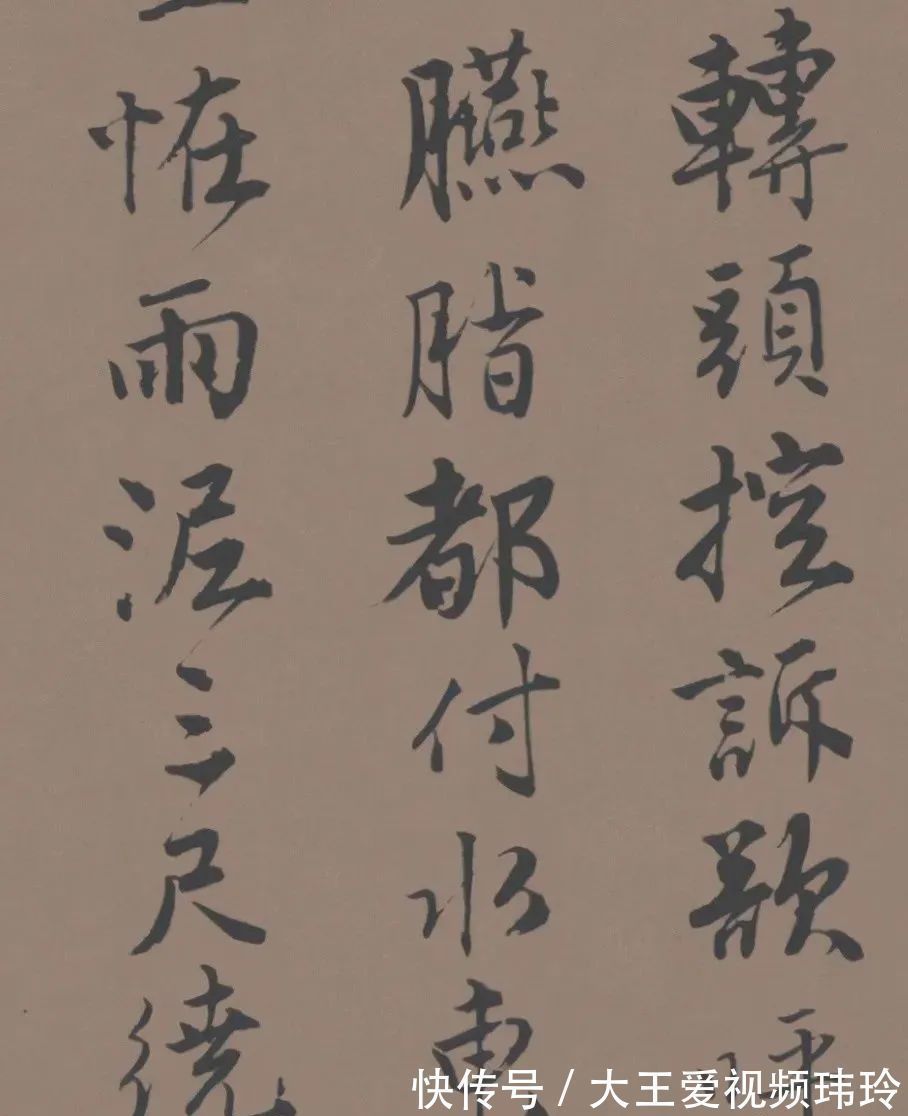 轉頭控訴
臙脂都付水東
恠雨泥三尺
快传号 / 大王爱视频玮玲